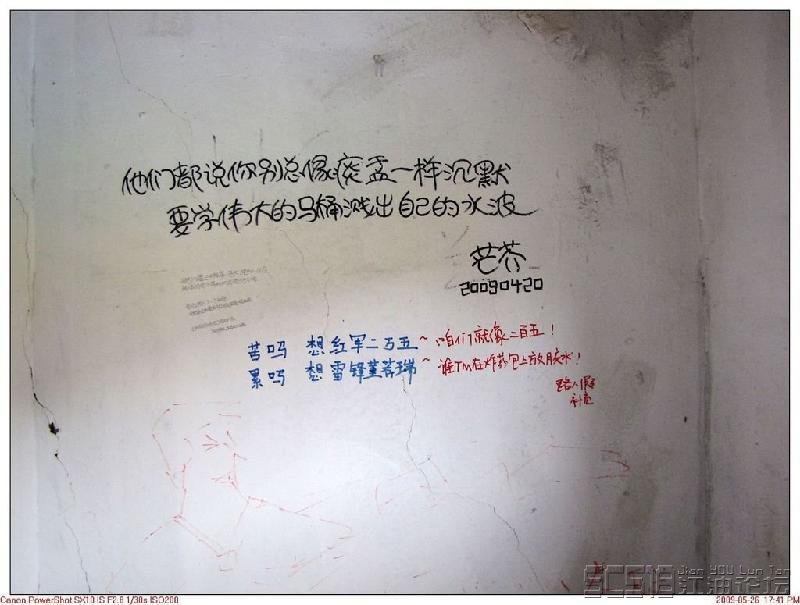 他们都说你别总像痰盂一样沉默
要学伟大的马桶溅出自己的水波
芒芥
20090420
苦吗 想红军二万五~咱们就像二百五！
累吗 想雷锋董存瑞~谁TM在炸药包上放胶水！
路人假
补充
SCSIS Jian You Lun Tan 江油论坛
Canon PowerShot SX10 IS F2.8 1/30s ISO200
2009-05-26 17:41 PM